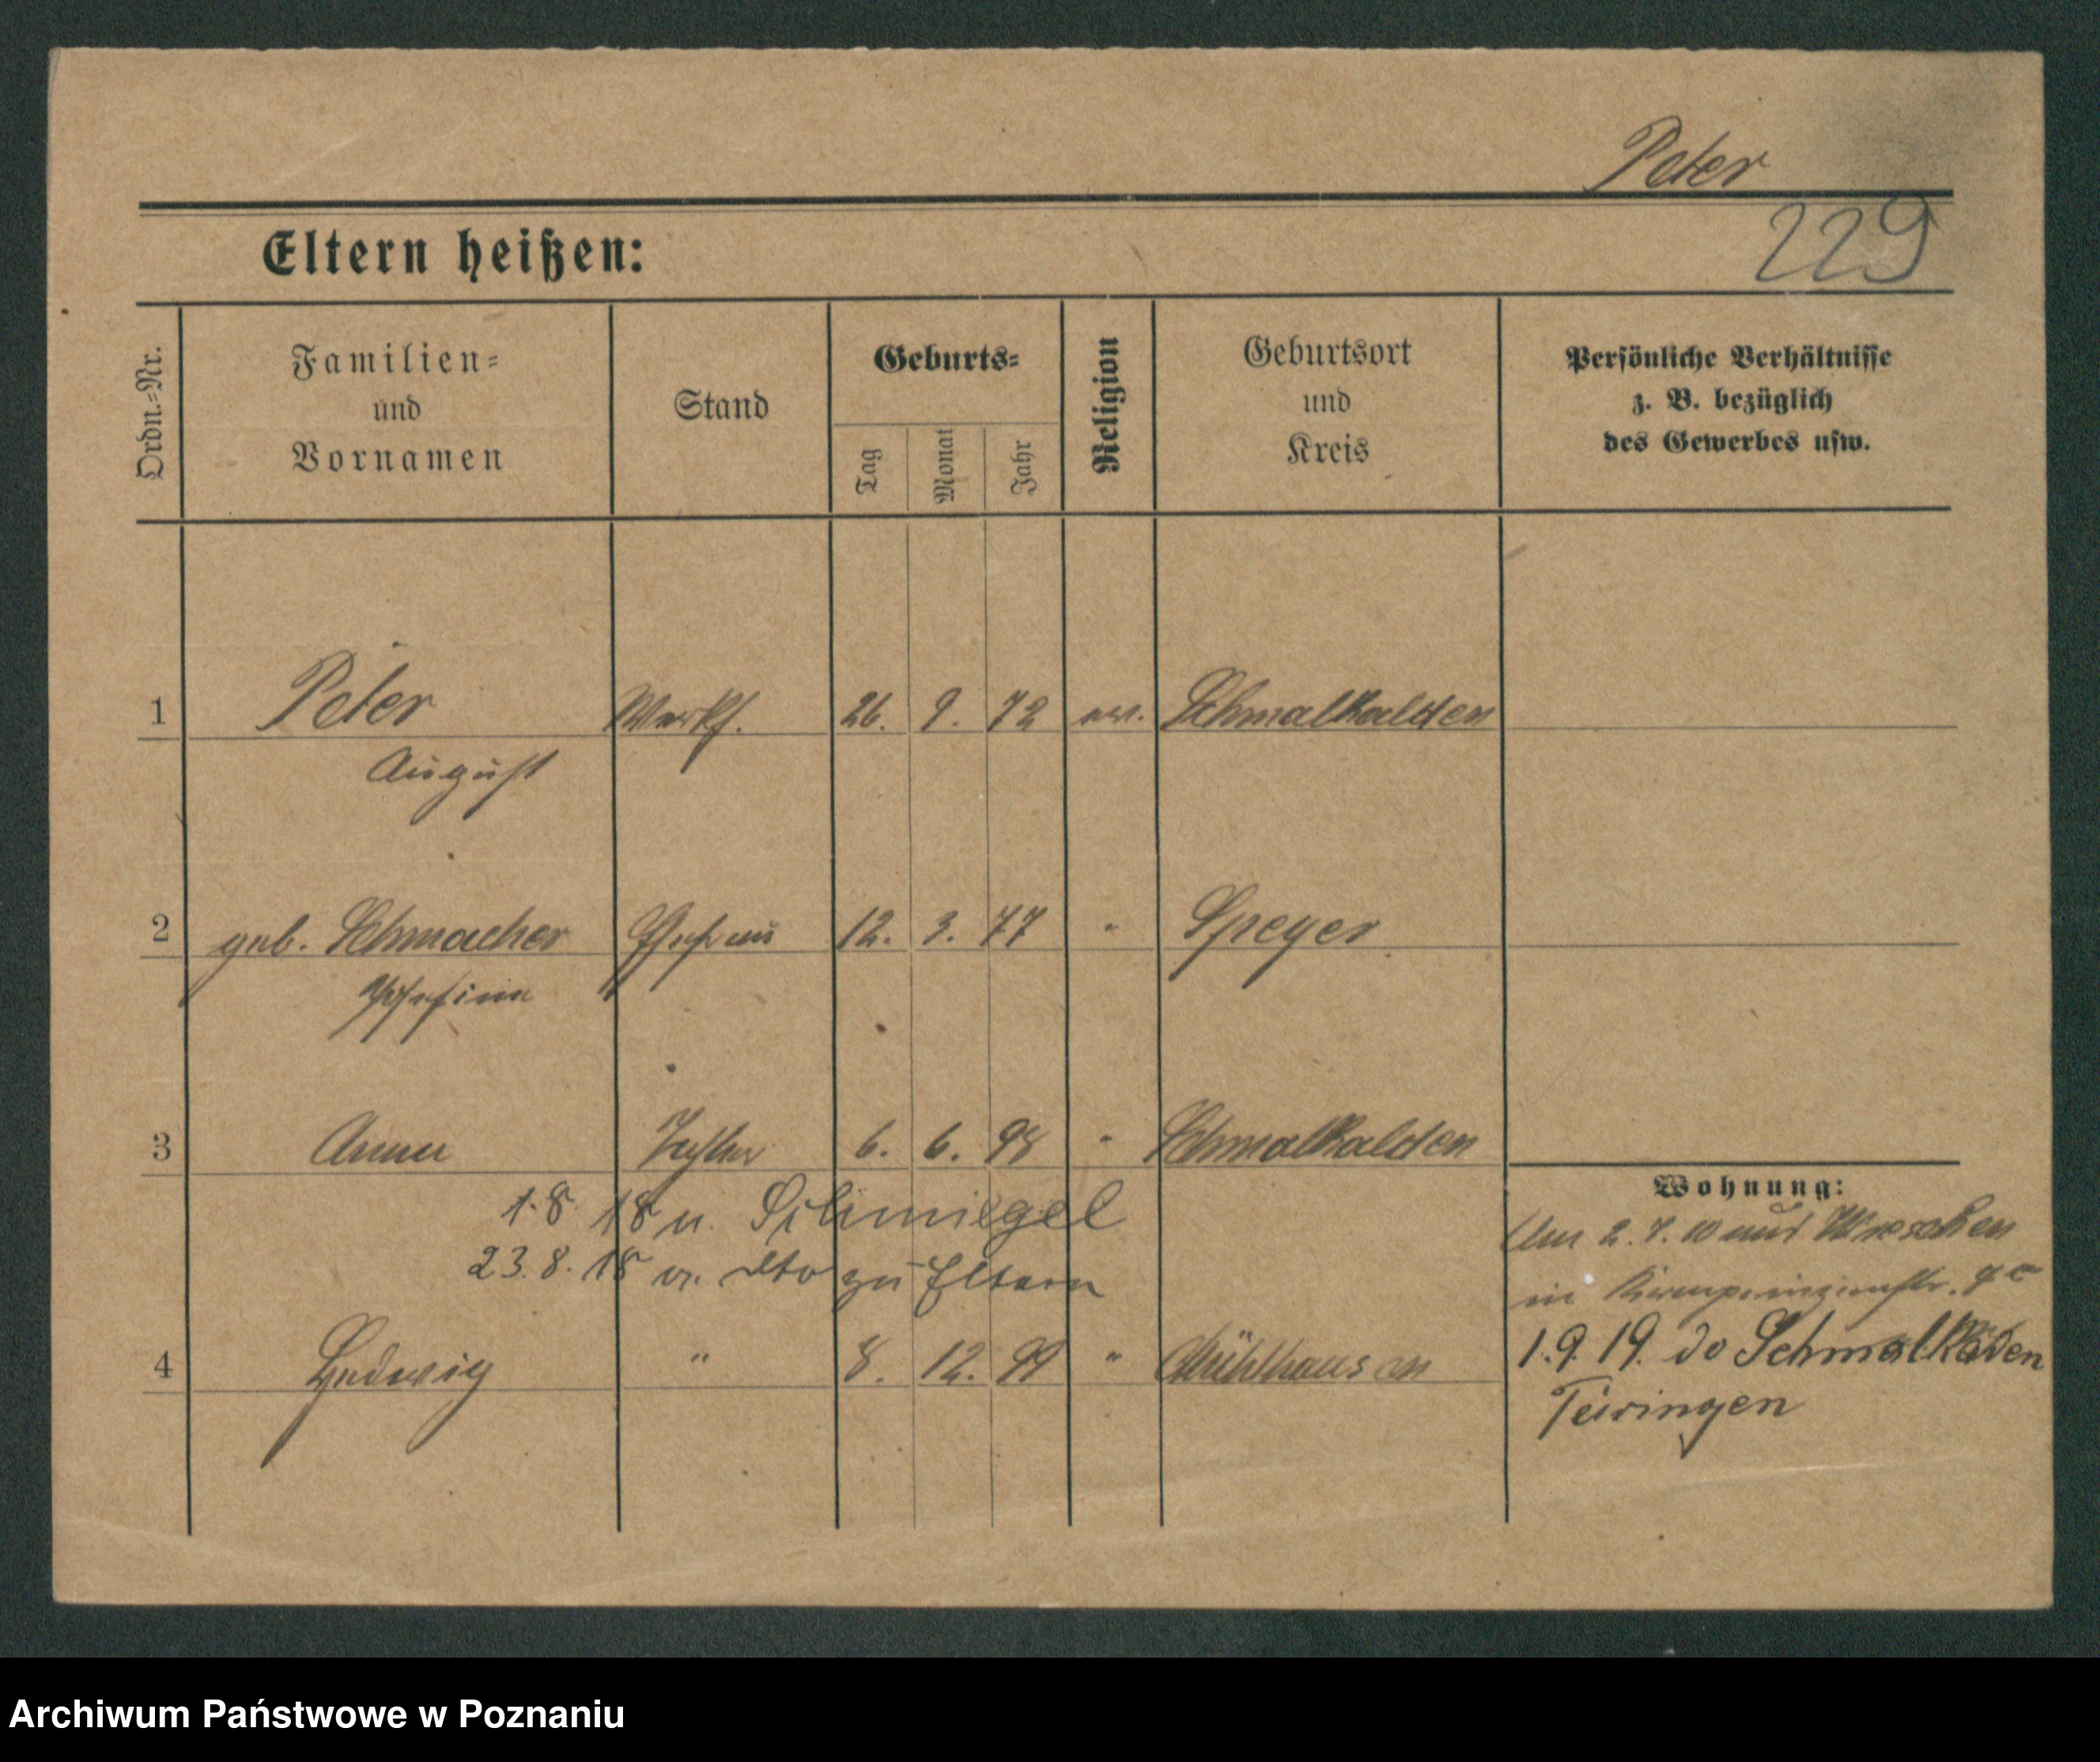 Peter
229
Eltern heißen:
Ordn.=Nr.
Familien=
und
Vornamen
Stand
Geburts=
Tag
Monat
Jahr
Religion
Geburtsort
und
Kreis
Persönliche Verhältnisse
z. B. bezüglich
des Gewerbes usw.
1 Peter Werkf. 26. 9. 72 ev. Schmalkalden
August
2 geb. Schmacher Ehefrau 12. 3. 77 " Speyer
Josefine
3 Anna Tochter 6. 6. 98 " Schmalkalden
1.8. 18 n. Schmiegel
23.8.18 v. dto zu Eltern
4 Ludwig " 8. 12. 99 " Mühlhausen
Wohnung:
Am 2.7.10 aus Wreschen
in
1.9.19. do Schmalkalden
Türingen
Archiwum Państwowe w Poznaniu